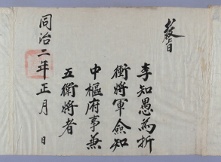 敎旨
李知愚為折
衝將軍僉知
中樞府事兼
五衛將者
同治二年正月 日